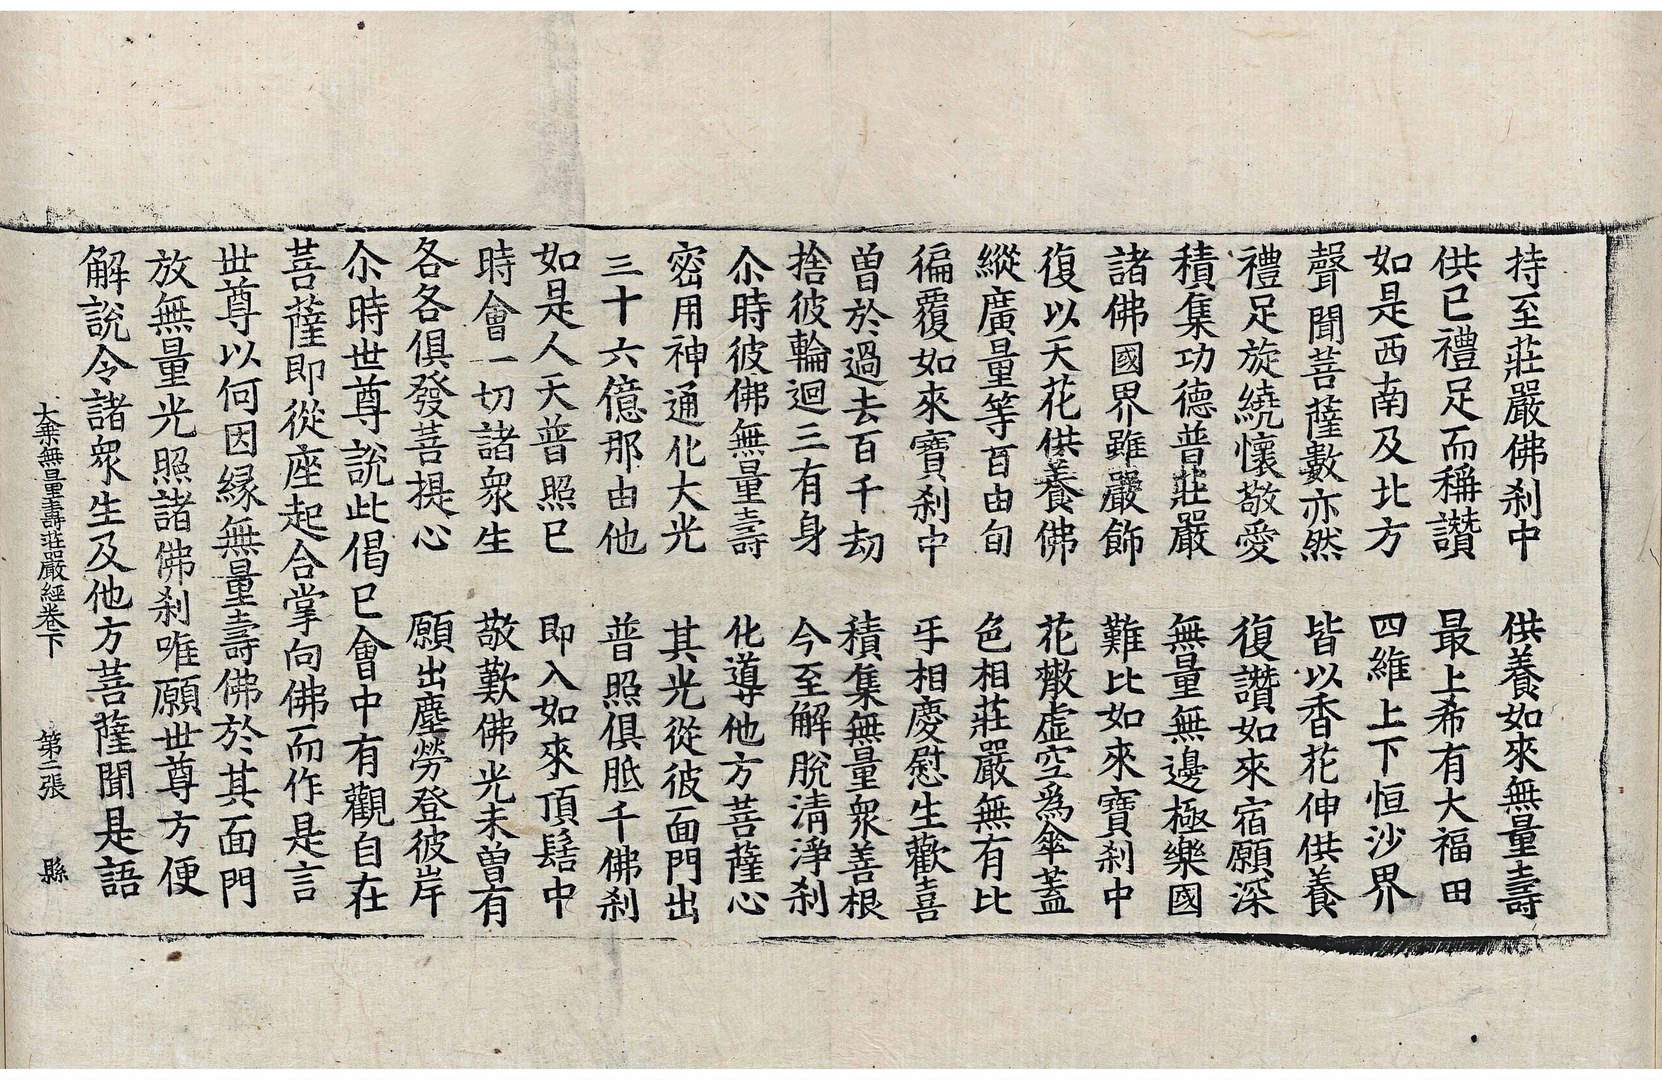 持至莊嚴佛刹中　供養如來無量壽
供已禮足而稱讚　最上希有大福田
如是西南及北方　四維上下恒沙界
聲聞菩薩數亦然　皆以香花伸供養
禮足旋繞懷敬愛　復讚如來宿願深
積集功德普莊嚴　無量無邊極樂國
諸佛國界雖嚴飾　難比如來寶刹中
復以天花供養佛　花散虛空爲傘蓋
縱廣量等百由旬　色相莊嚴無有比
徧覆如來寶刹中　㸦相慶慰生歡喜
曽於過去百千劫　積集無量衆善根
捨彼輪迴三有身　今至解脫清淨刹
尒時彼佛無量壽　化導他方菩薩心
密用神通化大光　其光從彼面門出
三十六億那由他　普照俱胝千佛刹
如是人天普照已　即入如來頂髻中
時會一切諸衆生　敬歎佛光未曽有
各各俱發菩提心　願出塵勞登彼岸
尒時世尊說此偈已會中有觀自在
菩薩即從座起合掌向佛而作是言
世尊以何因緣無量壽佛於其面門
放無量光照諸佛刹唯願世尊方便
解說令諸衆生及他方菩薩聞是語
大乗無量壽莊嚴經卷下　第二張　縣